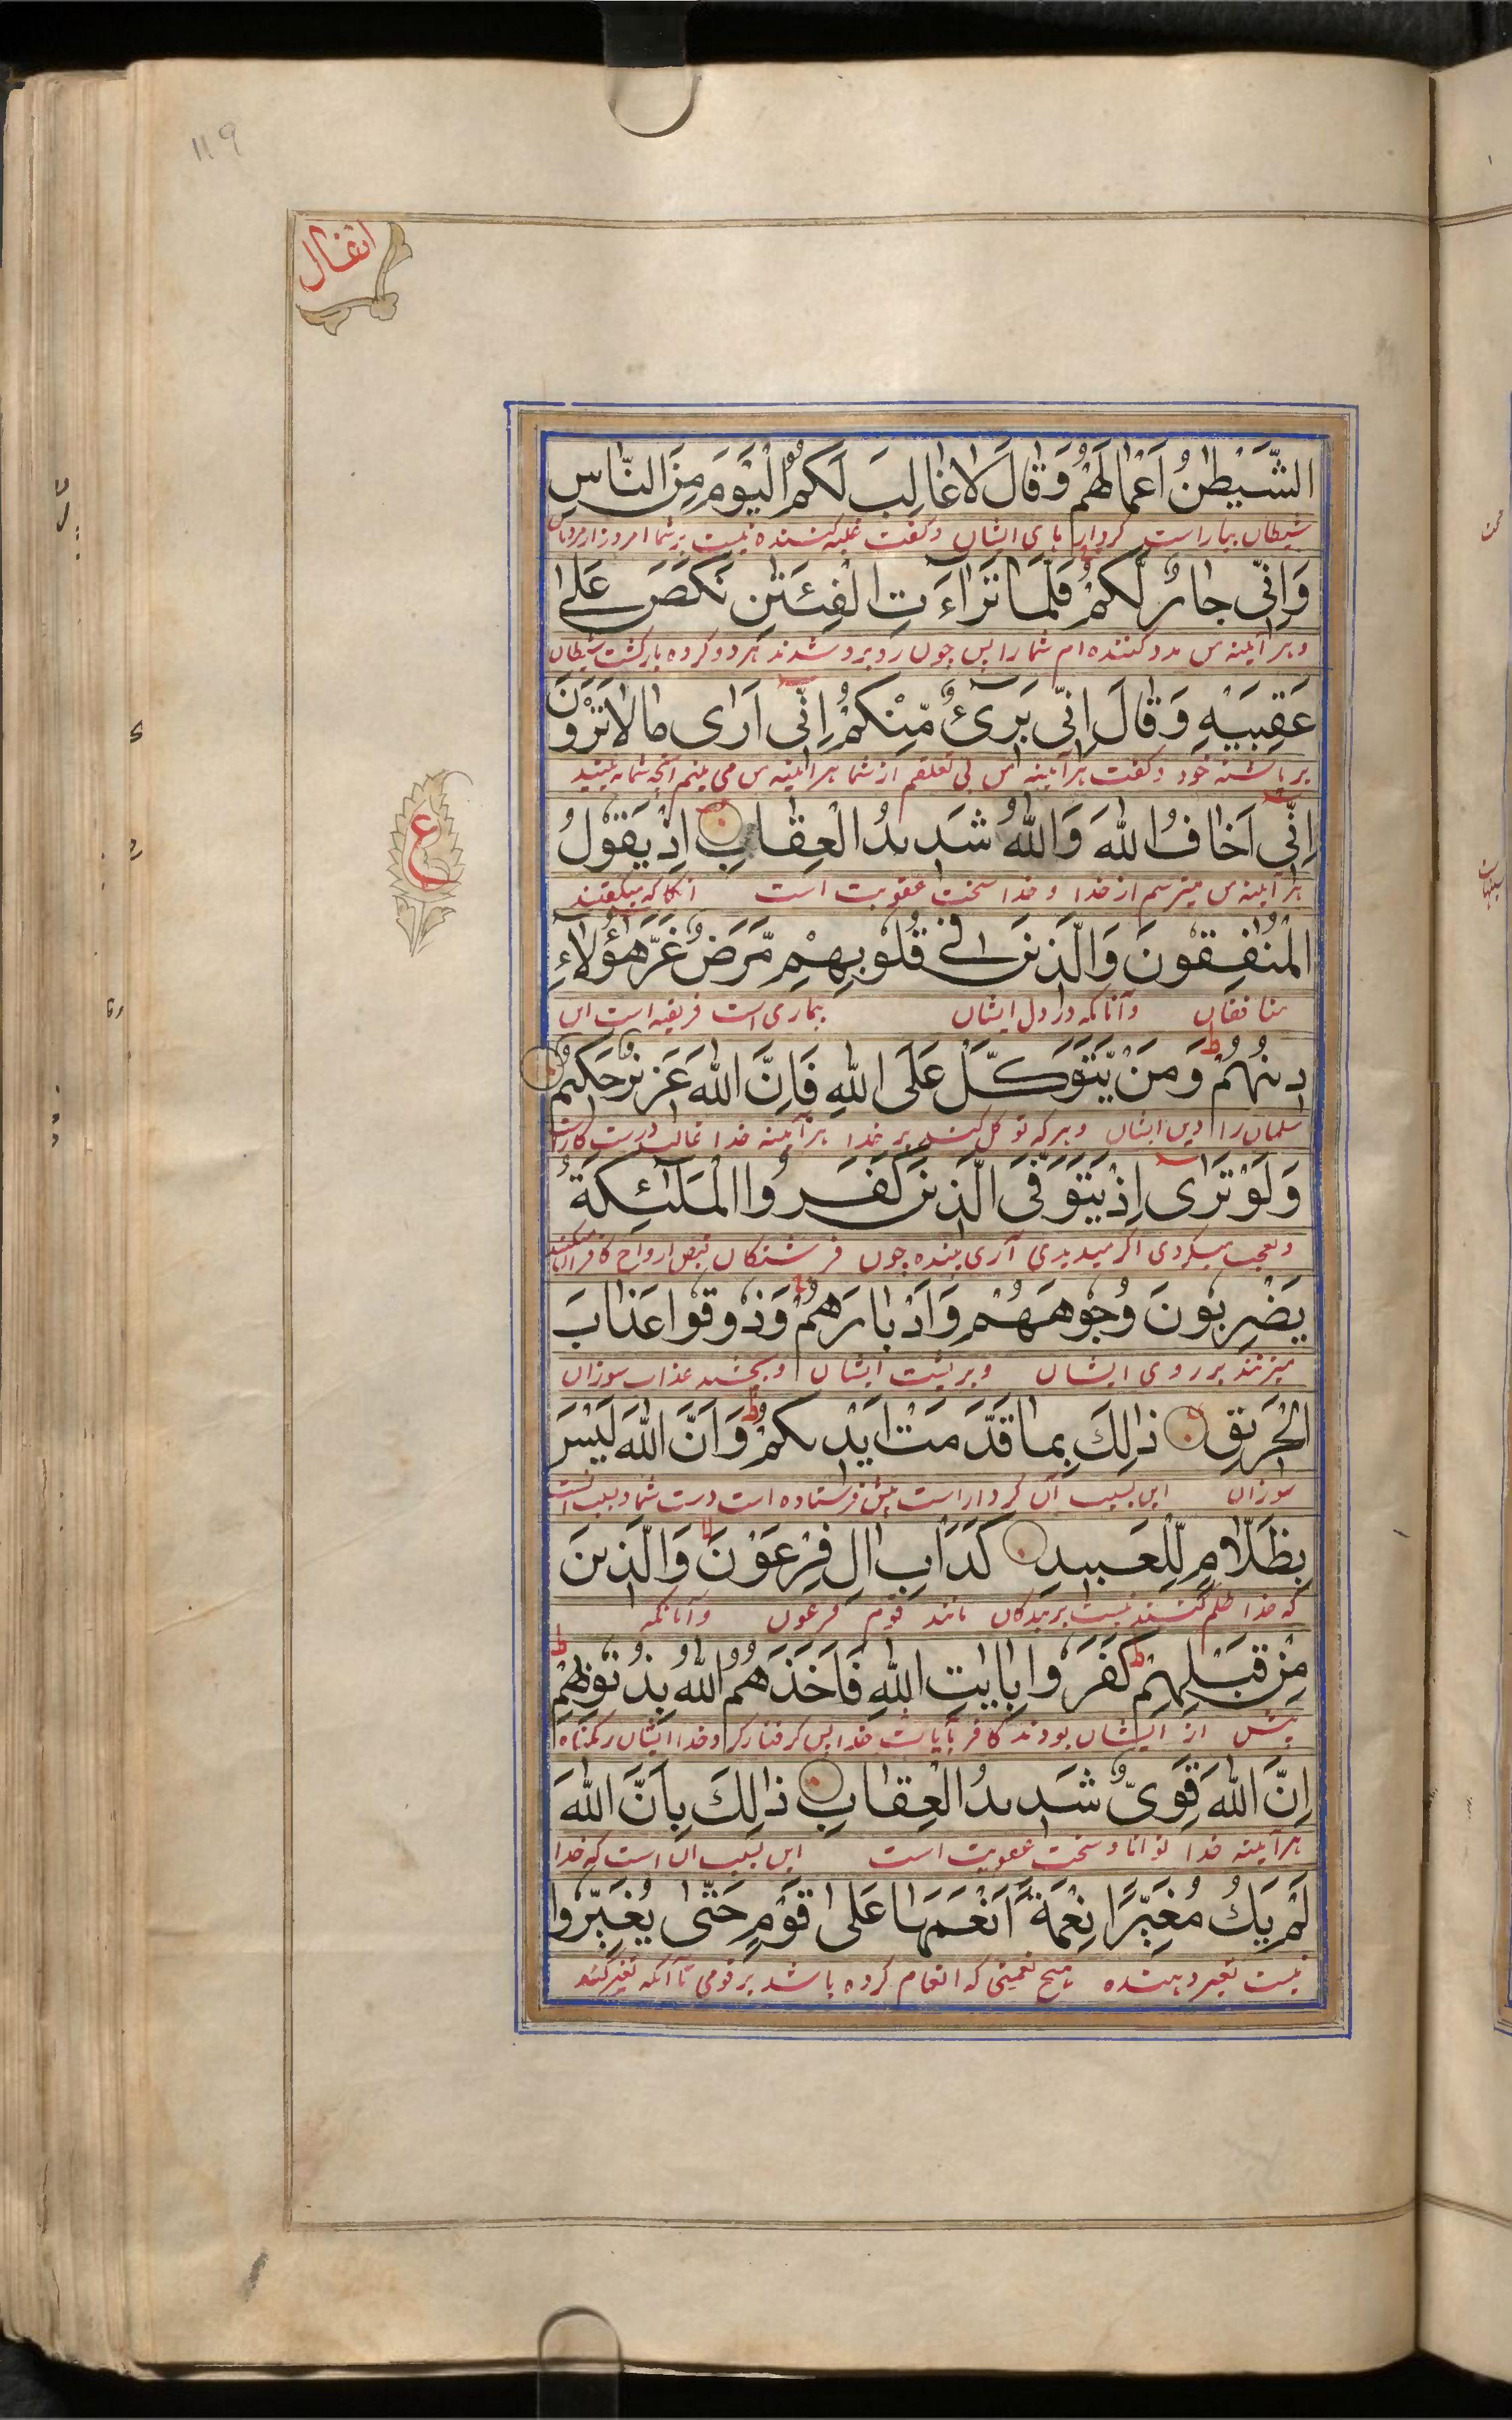 119
انفال
الشَّيْطٰنُ اَعْمَالَهُمْ وَقَالَ لَا غَالِبَ لَكُمُ الْيَوْمَ مِنَ النَّاسِ
شیطان بیاراست کردارهای ایشان و گفت غلبه کننده نیست بر شما امروز از مردمان
وَاِنِّى جَارٌ لَّكُمْ فَلَمَّا تَرَاءَتِ الْفِئَتٰنِ نَكَصَ عَلٰى
و هر آیینه من مدد کننده ام شما را پس چون روبرو شدند هر دو گروه بازگشت شیطان
عَقِبَيْهِ وَقَالَ اِنِّى بَرِىْءٌ مِّنْكُمْ اِنِّى اَرٰى مَا لَا تَرَوْنَ
بر پاشنه خود و گفت هر آیینه من بی تعلقم از شما هر آیینه من می بینم آنچه شما نه بینید
اِنِّى اَخَافُ اللّٰهَ وَاللّٰهُ شَدِيدُ الْعِقَابِ اِذْ يَقُوْلُ
هر آیینه من میترسم از خدا و خدا سخت عقوبت است آنگاه که میگفتند
الْمُنٰفِقُوْنَ وَالَّذِيْنَ فِى قُلُوْبِهِمْ مَّرَضٌ غَرَّ هٰؤُلَاءِ
منافقان و آنانکه در دل ایشان بیماری است فریفته است این
دِيْنُهُمْ وَمَنْ يَّتَوَكَّلْ عَلَى اللّٰهِ فَاِنَّ اللّٰهَ عَزِيْزٌ حَكِيْمٌ
مسلمان را دین ایشان و هر که توکل کند بر خدا هر آیینه خدا غالب درست کار است
وَلَوْ تَرٰى اِذْ يَتَوَفَّى الَّذِيْنَ كَفَرُوا الْمَلٰئِكَةُ
و تعجب میکردی اگر میدیدی آری بیننده چون فرشتگان قبض ارواح کافران میکنند
يَضْرِبُوْنَ وُجُوْهَهُمْ وَاَدْبَارَهُمْ وَذُوْقُوْا عَذَابَ
میزنند بر روی ایشان و بر پشت ایشان و بچشید عذاب سوزان
الْحَرِيْقِ ذٰلِكَ بِمَا قَدَّمَتْ اَيْدِيكُمْ وَاَنَّ اللّٰهَ لَيْسَ
سوزان این بسبب آن کردار است پیش فرستاده است دست شما و بسبب آنست
بِظَلَّامٍ لِّلْعَبِيدِ كَدَاْبِ اٰلِ فِرْعَوْنَ وَالَّذِيْنَ
که خدا ظلم کننده نیست بر بندگان مانند قوم فرعون و آنانکه
مِنْ قَبْلِهِمْ كَفَرُوْا بِاٰيٰتِ اللّٰهِ فَاَخَذَهُمُ اللّٰهُ بِذُنُوْبِهِمْ
پیش از ایشان بودند کافر بآیات خدا پس گرفتار کرد خدا ایشان را بگناه
اِنَّ اللّٰهَ قَوِىٌّ شَدِيدُ الْعِقَابِ ذٰلِكَ بِاَنَّ اللّٰهَ
هر آیینه خدا توانا و سخت عقوبت است این بسبب آن است که خدا
لَمْ يَكُ مُغَيِّرًا نِعْمَةً اَنْعَمَهَا عَلٰى قَوْمٍ حَتّٰى يُغَيِّرُوْا
نیست تغیر دهنده هیچ نعمتی که انعام کرده باشد بر قومی تا آنکه تغیر کنند
ع